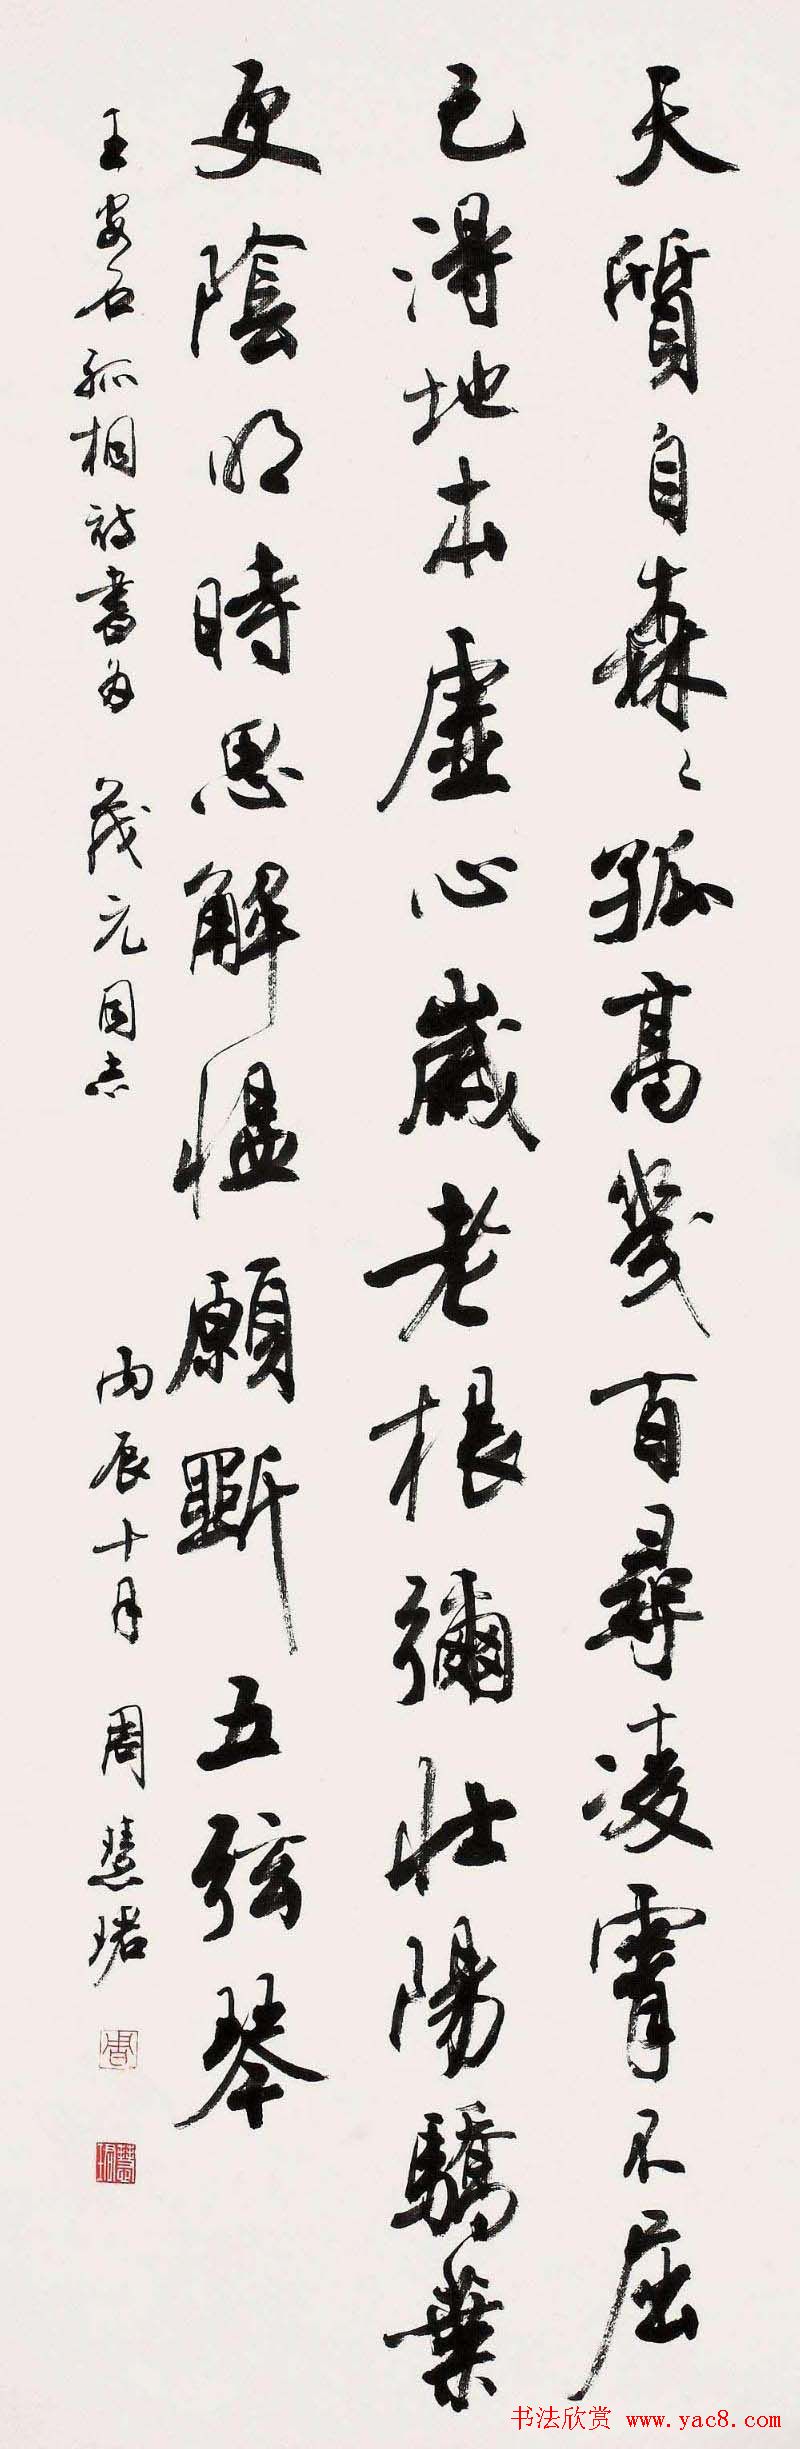 天質自森〻孤高幾百尋凌霄不屈
已得地本虛心歲老根彌壯陽驕葉
更陰明時思解慍願斲五弦琴
王安石孤桐詩書為 茂元同志 丙辰十月 周慧珺
周
慧珺
书法欣赏 www.yac8.com